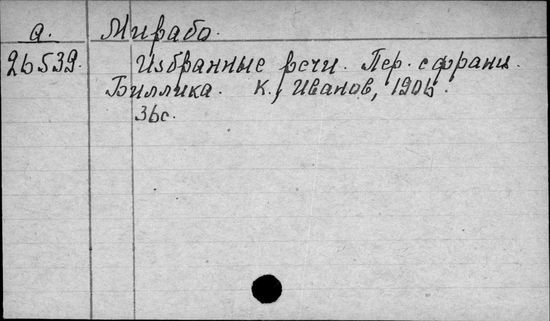 а. Мирабо.
26539. Избранные речи. Пер. с франц.
Биллика. К., Иванов, 1906.
36с.